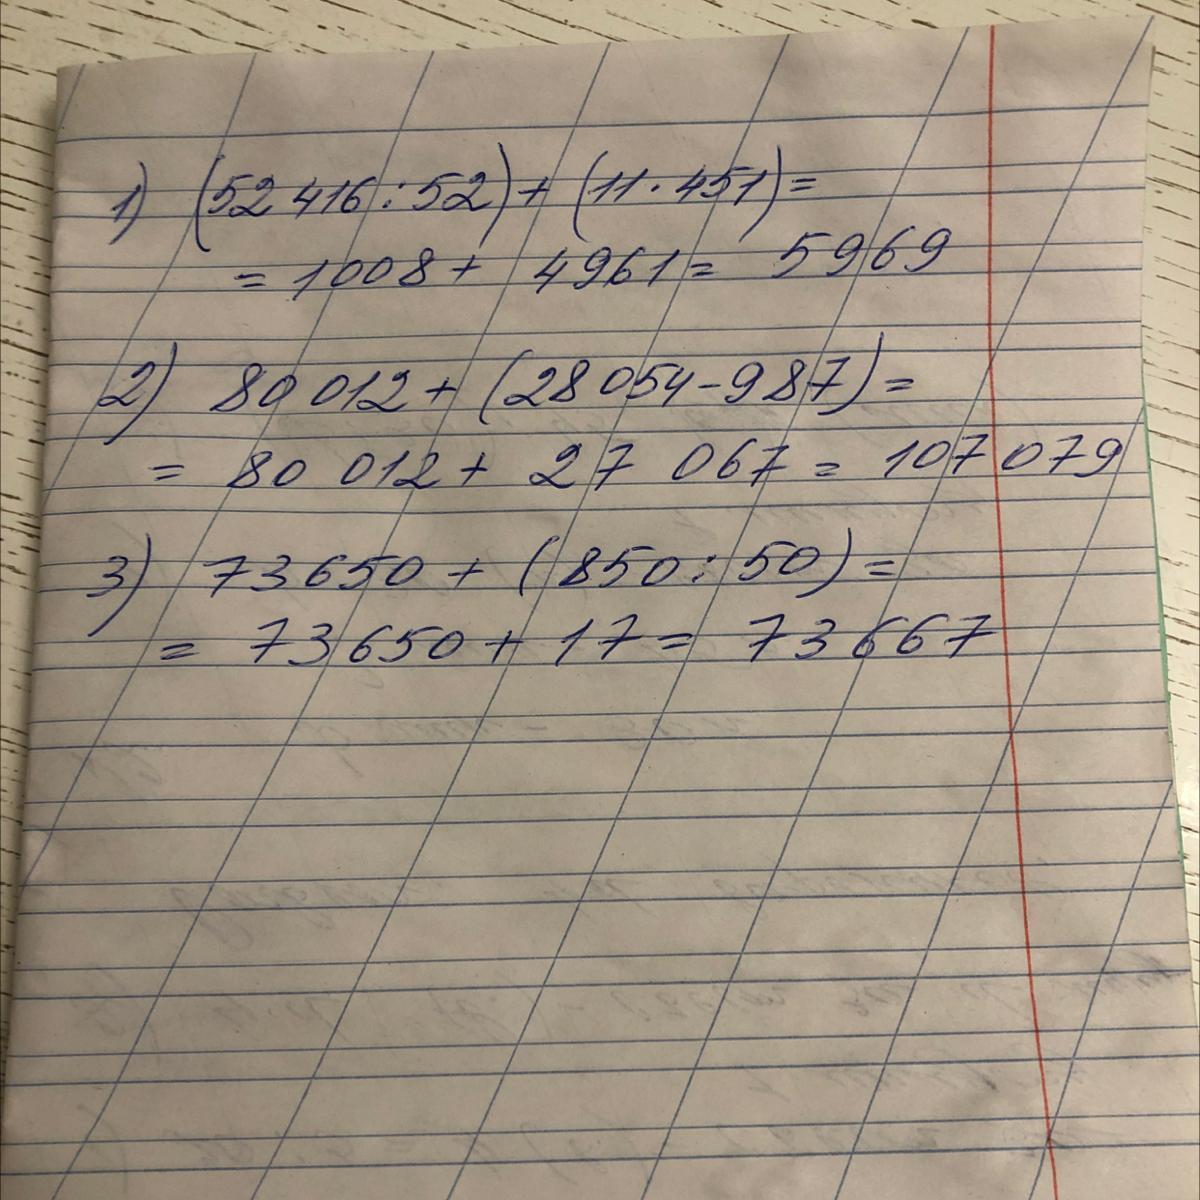 1) (52 416 : 52) + (11 · 451) =
= 1008 + 4961 = 5969
2) 80 012 + (28 054 - 987) =
= 80 012 + 27 067 = 107 079
3) 73 650 + (850 : 50) =
= 73 650 + 17 = 73 667